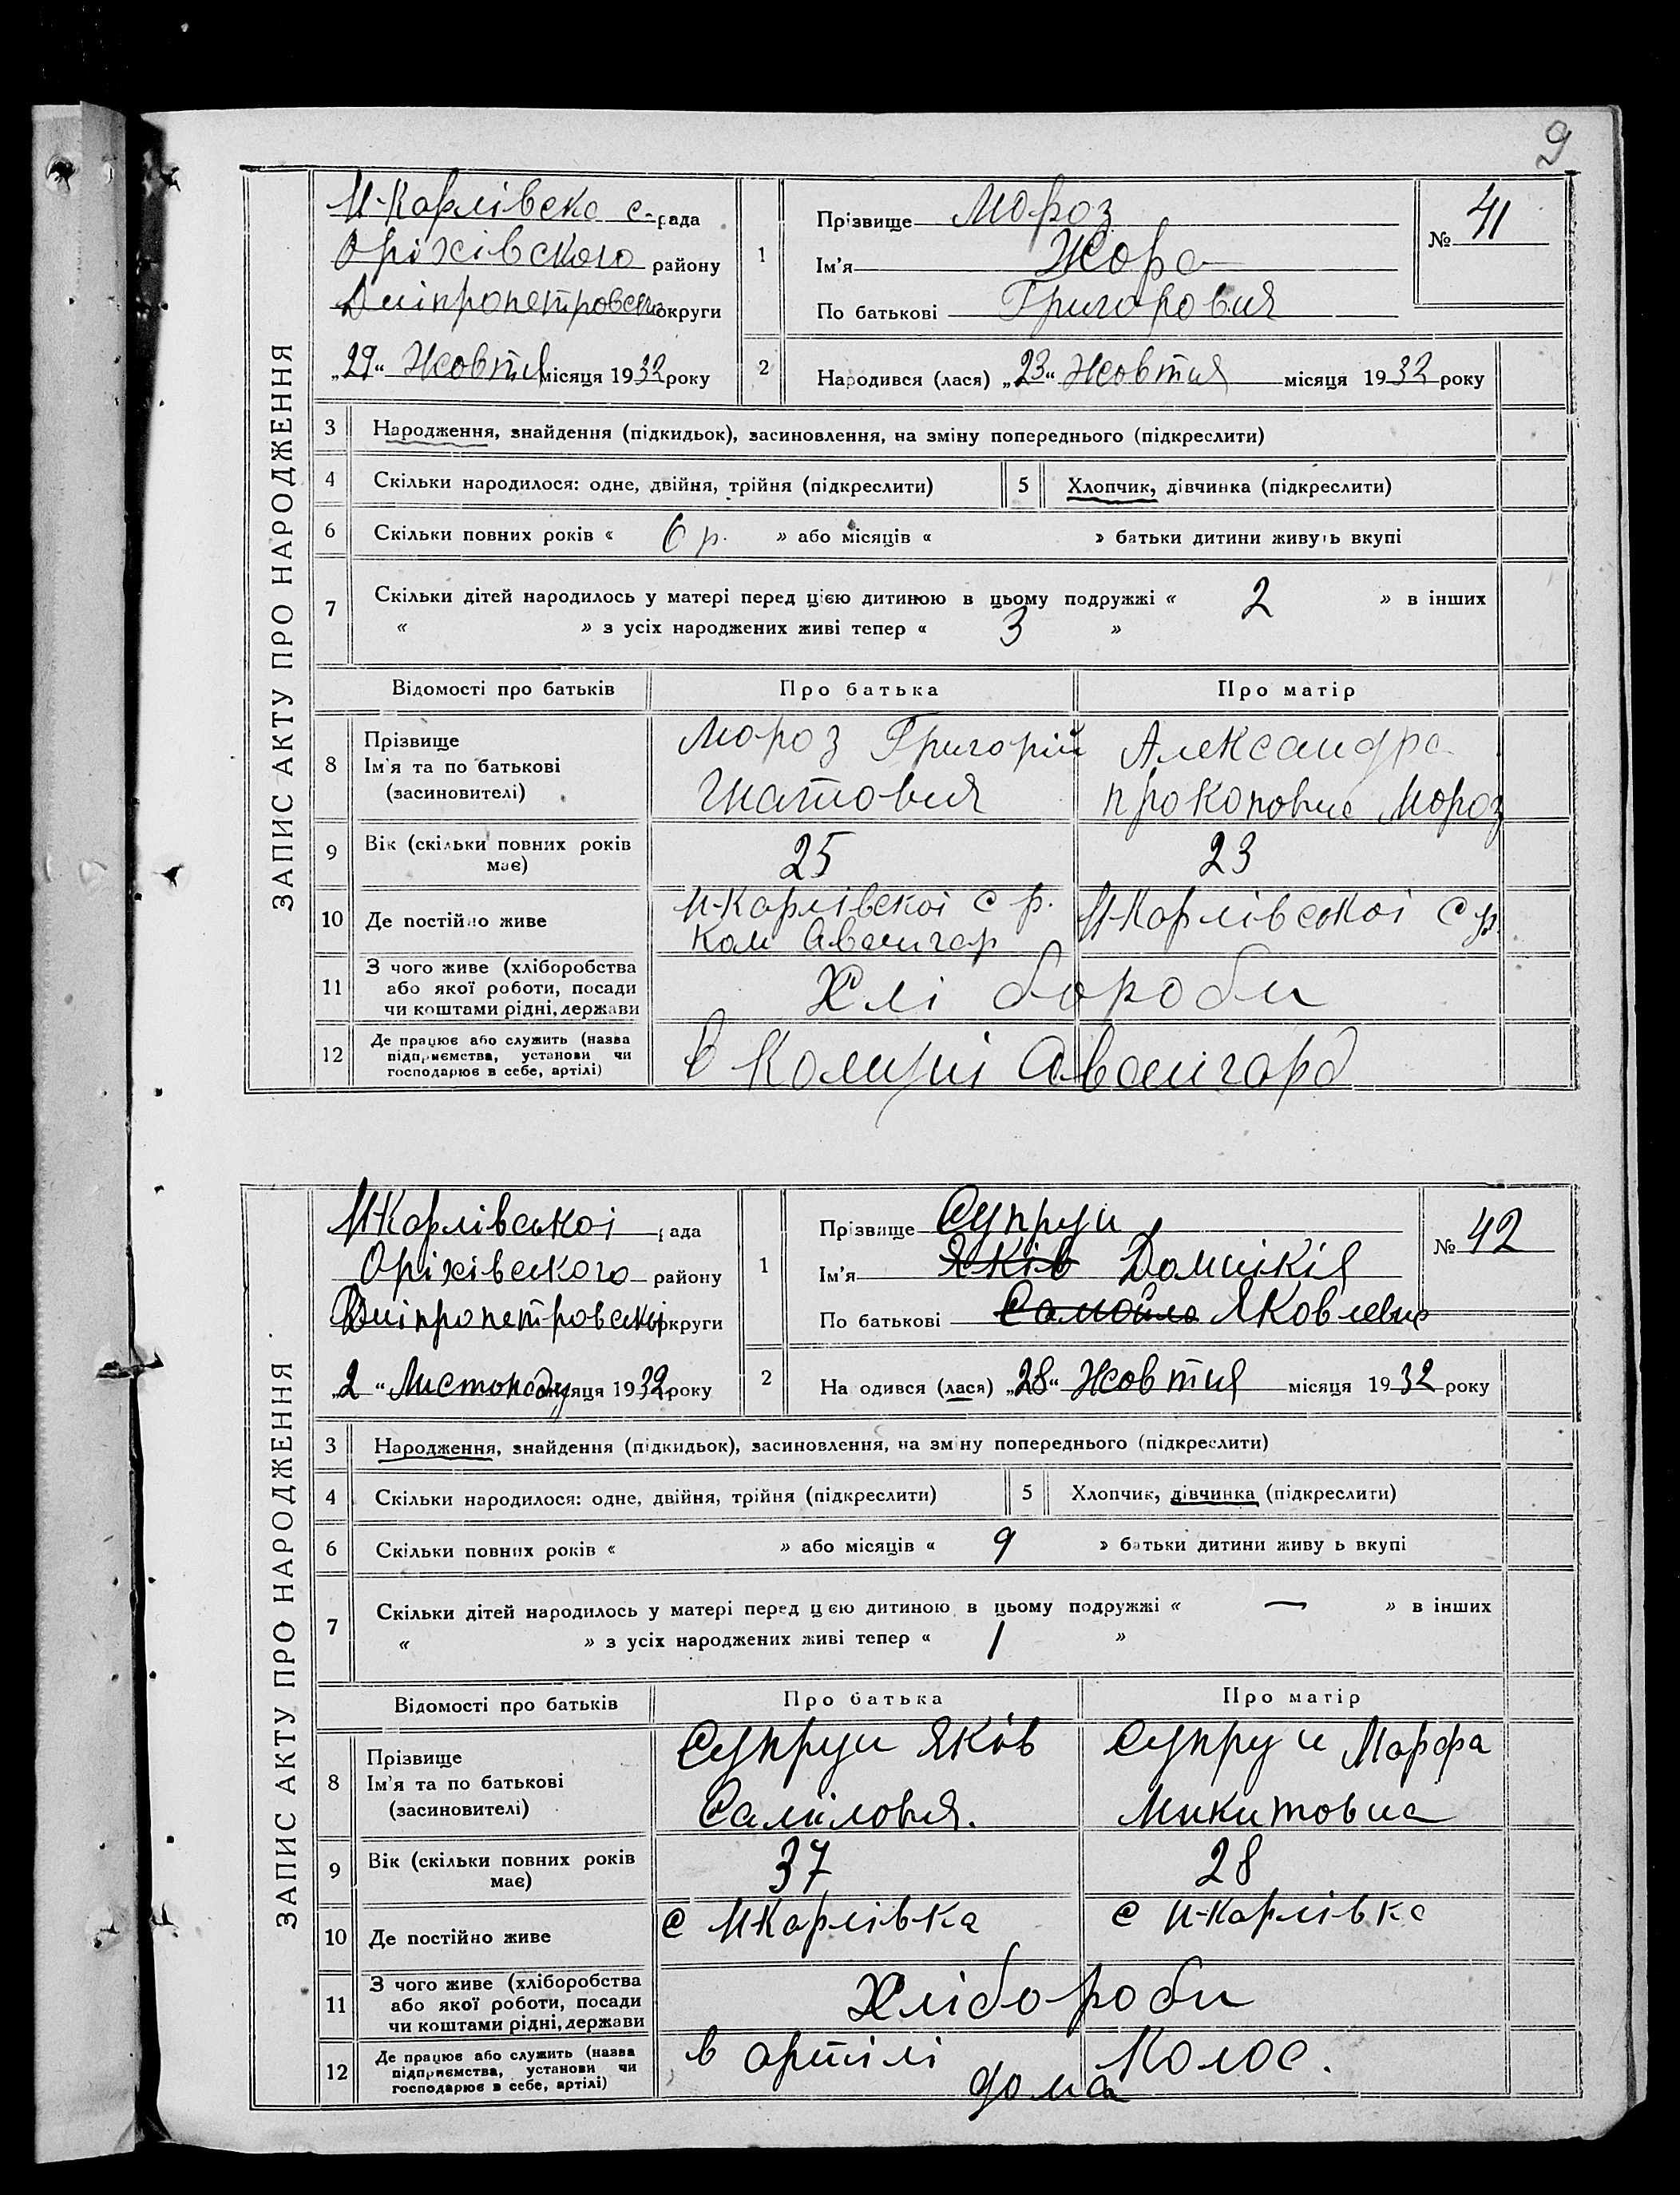 9
ЗАПИС АКТУ ПРО НАРОДЖЕННЯ
Н-Карлівска с-рада
Оріхівского району
Дніпропетровско округи
„29“ Жовтня місяця 1932 року
1
Прізвище Мороз
Ім'я Жора
По батькові Григорович
№ 41
2
Народився (лася) „23“ Жовтня місяця 1932 року
3 Народження, знайдення (підкидьок), засиновлення, на зміну попереднього (підкреслити)
4 Скільки народилося: одне, двійня, трійня (підкреслити) 5 Хлопчик, дівчинка (підкреслити)
6 Скільки повних років « 6 р. » або місяців « » батьки дитини живуть вкупі
7 Скільки дітей народилось у матері перед цією дитиною в цьому подружжі « 2 » в інших
« » з усіх народжених живі тепер « 3 »
Відомості про батьків Про батька Про матір
8 Прізвище Ім'я та по батькові (засиновителі)
Мороз Григорій Александра
Гнатович Прокоповна Мороз
9 Вік (скільки повних років має) 25 23
10 Де постійно живе
Н-Карлівскої с р. Н-Карлівської с р.
Ком Авангар
11 З чого живе (хліборобства або якої роботи, посади чи коштами рідні, держави
Хлібороби
12 Де працює або служить (назва підприємства, установи чи господарює в себе, артілі)
в Комуні Авангард
ЗАПИС АКТУ ПРО НАРОДЖЕННЯ
Н-Карлівської рада
Оріхівского району
Дніпропетровської округи
„2“ Листопаду місяця 1932 року
1
Прізвище Супрун
Ім'я Яків Домнікія
По батькові Самойло Яковлевна
№ 42
2
На одився (лася) „28“ Жовтня місяця 1932 року
3 Народження, знайдення (підкидьок), засиновлення, на зміну попереднього (підкреслити)
4 Скільки народилося: одне, двійня, трійня (підкреслити) 5 Хлопчик, дівчинка (підкреслити)
6 Скільки повних років « » або місяців « 9 » батьки дитини живу ь вкупі
7 Скільки дітей народилось у матері перед цією дитиною в цьому подружжі « — » в інших
« » з усіх народжених живі тепер « 1 »
Відомості про батьків Про батька Про матір
8 Прізвище Ім'я та по батькові (засиновителі)
Супрун Яків Супрун Марфа
Самілович. Микитовна
9 Вік (скільки повних років має) 37 28
10 Де постійно живе с Н-Карлівка с Н-Карлівка
11 З чого живе (хліборобства або якої роботи, посади чи коштами рідні, держави
Хлібороби
12 Де працює або служить (назва підприємства, установи чи господарює в себе, артілі)
в артілі Колос.
дома